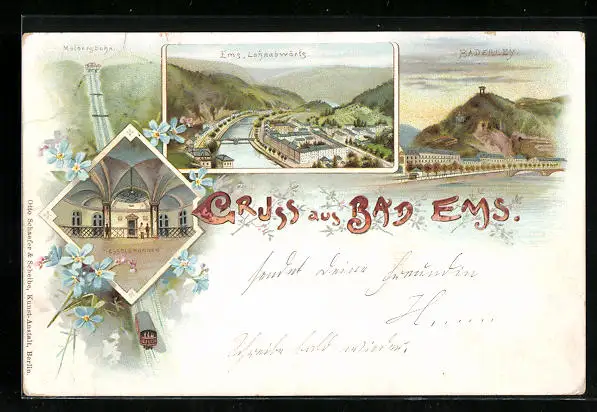 Malbergbahn.
Ems, Lahnabwärts
BADERLEY.
KESSELBRUNNEN
GRUSS aus BAD EMS.
sendet Deine Freundin
H.....
Schreibe bald wieder.
Otto Schaefer & Scheibe, Kunst-Anstalt, Berlin.